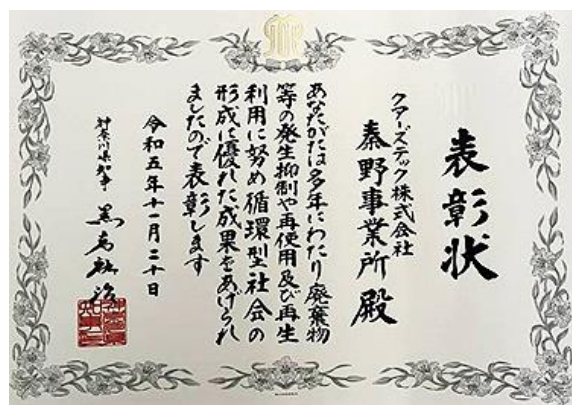 表彰状
クアーズテック株式会社
秦野事業所 殿
あなたがたは多年にわたり廃棄物
等の発生抑制や再使用及び再生
利用に努め循環型社会の
形成に優れた成果をあげられ
ましたので表彰します
令和五年十一月二十日
神奈川県知事 黒岩祐治